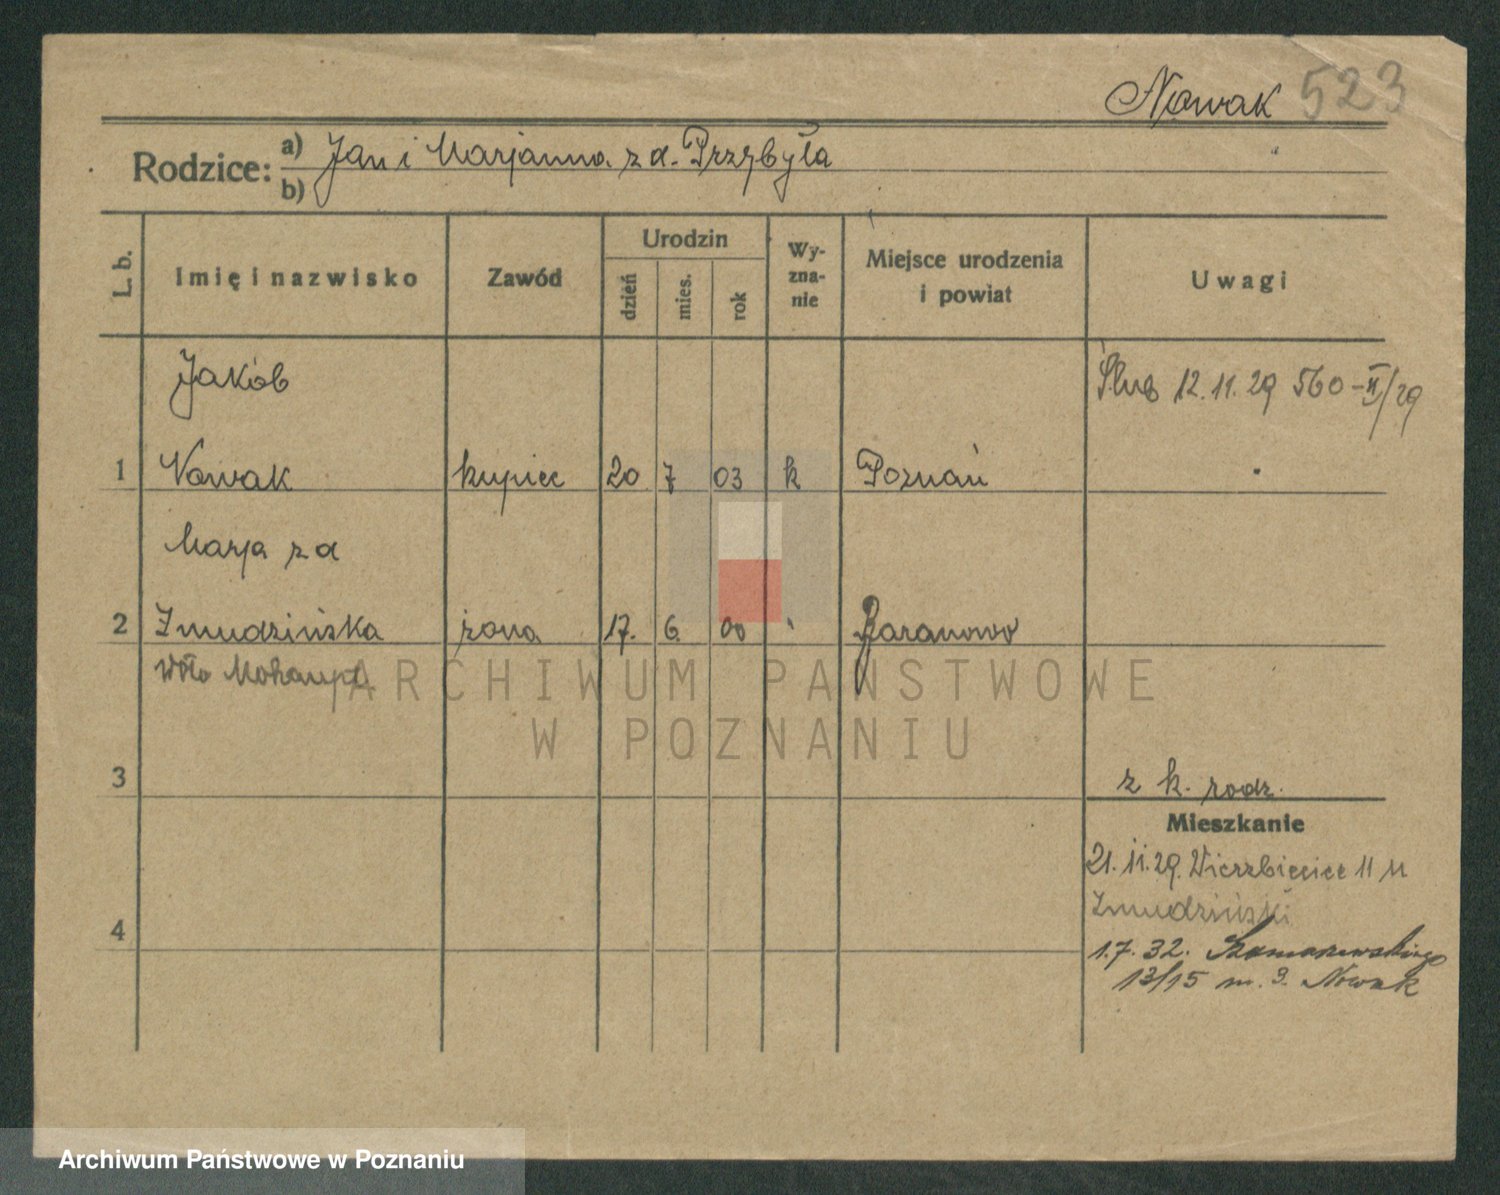 Nowak 523
Rodzice: a) Jan i Marjanna z d. Przybyła
b)
L. b.
Imię i nazwisko
Zawód
Urodzin
dzień
mies.
rok
Wy-
zna-
nie
Miejsce urodzenia
i powiat
Uwagi
Jakób
Ślub 12.11.29 560-II/29
1 Nowak kupiec 20 7 03 k Poznań
Marja z d
2 Żmudzińska żona 17. 6. 00 Baranowo
ARCHIWUM PAŃSTWOWE
W POZNANIU
3
z k. rodz.
Mieszkanie
21.11.29. Wierzbięcice 11 u
Żmudziński
4
1.7.32. Szamarzewskiego
13/15 m. 9. Nowak
Archiwum Państwowe w Poznaniu